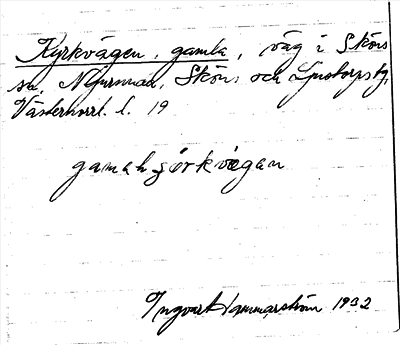 Kyrkvägen, gamla, väg i Sköns
sn, Njurunda, Sköns och Ljustorps tg,
Västernorrl. l. 19
gamah śörkvẹgan
Ingvar Hammarström 1932